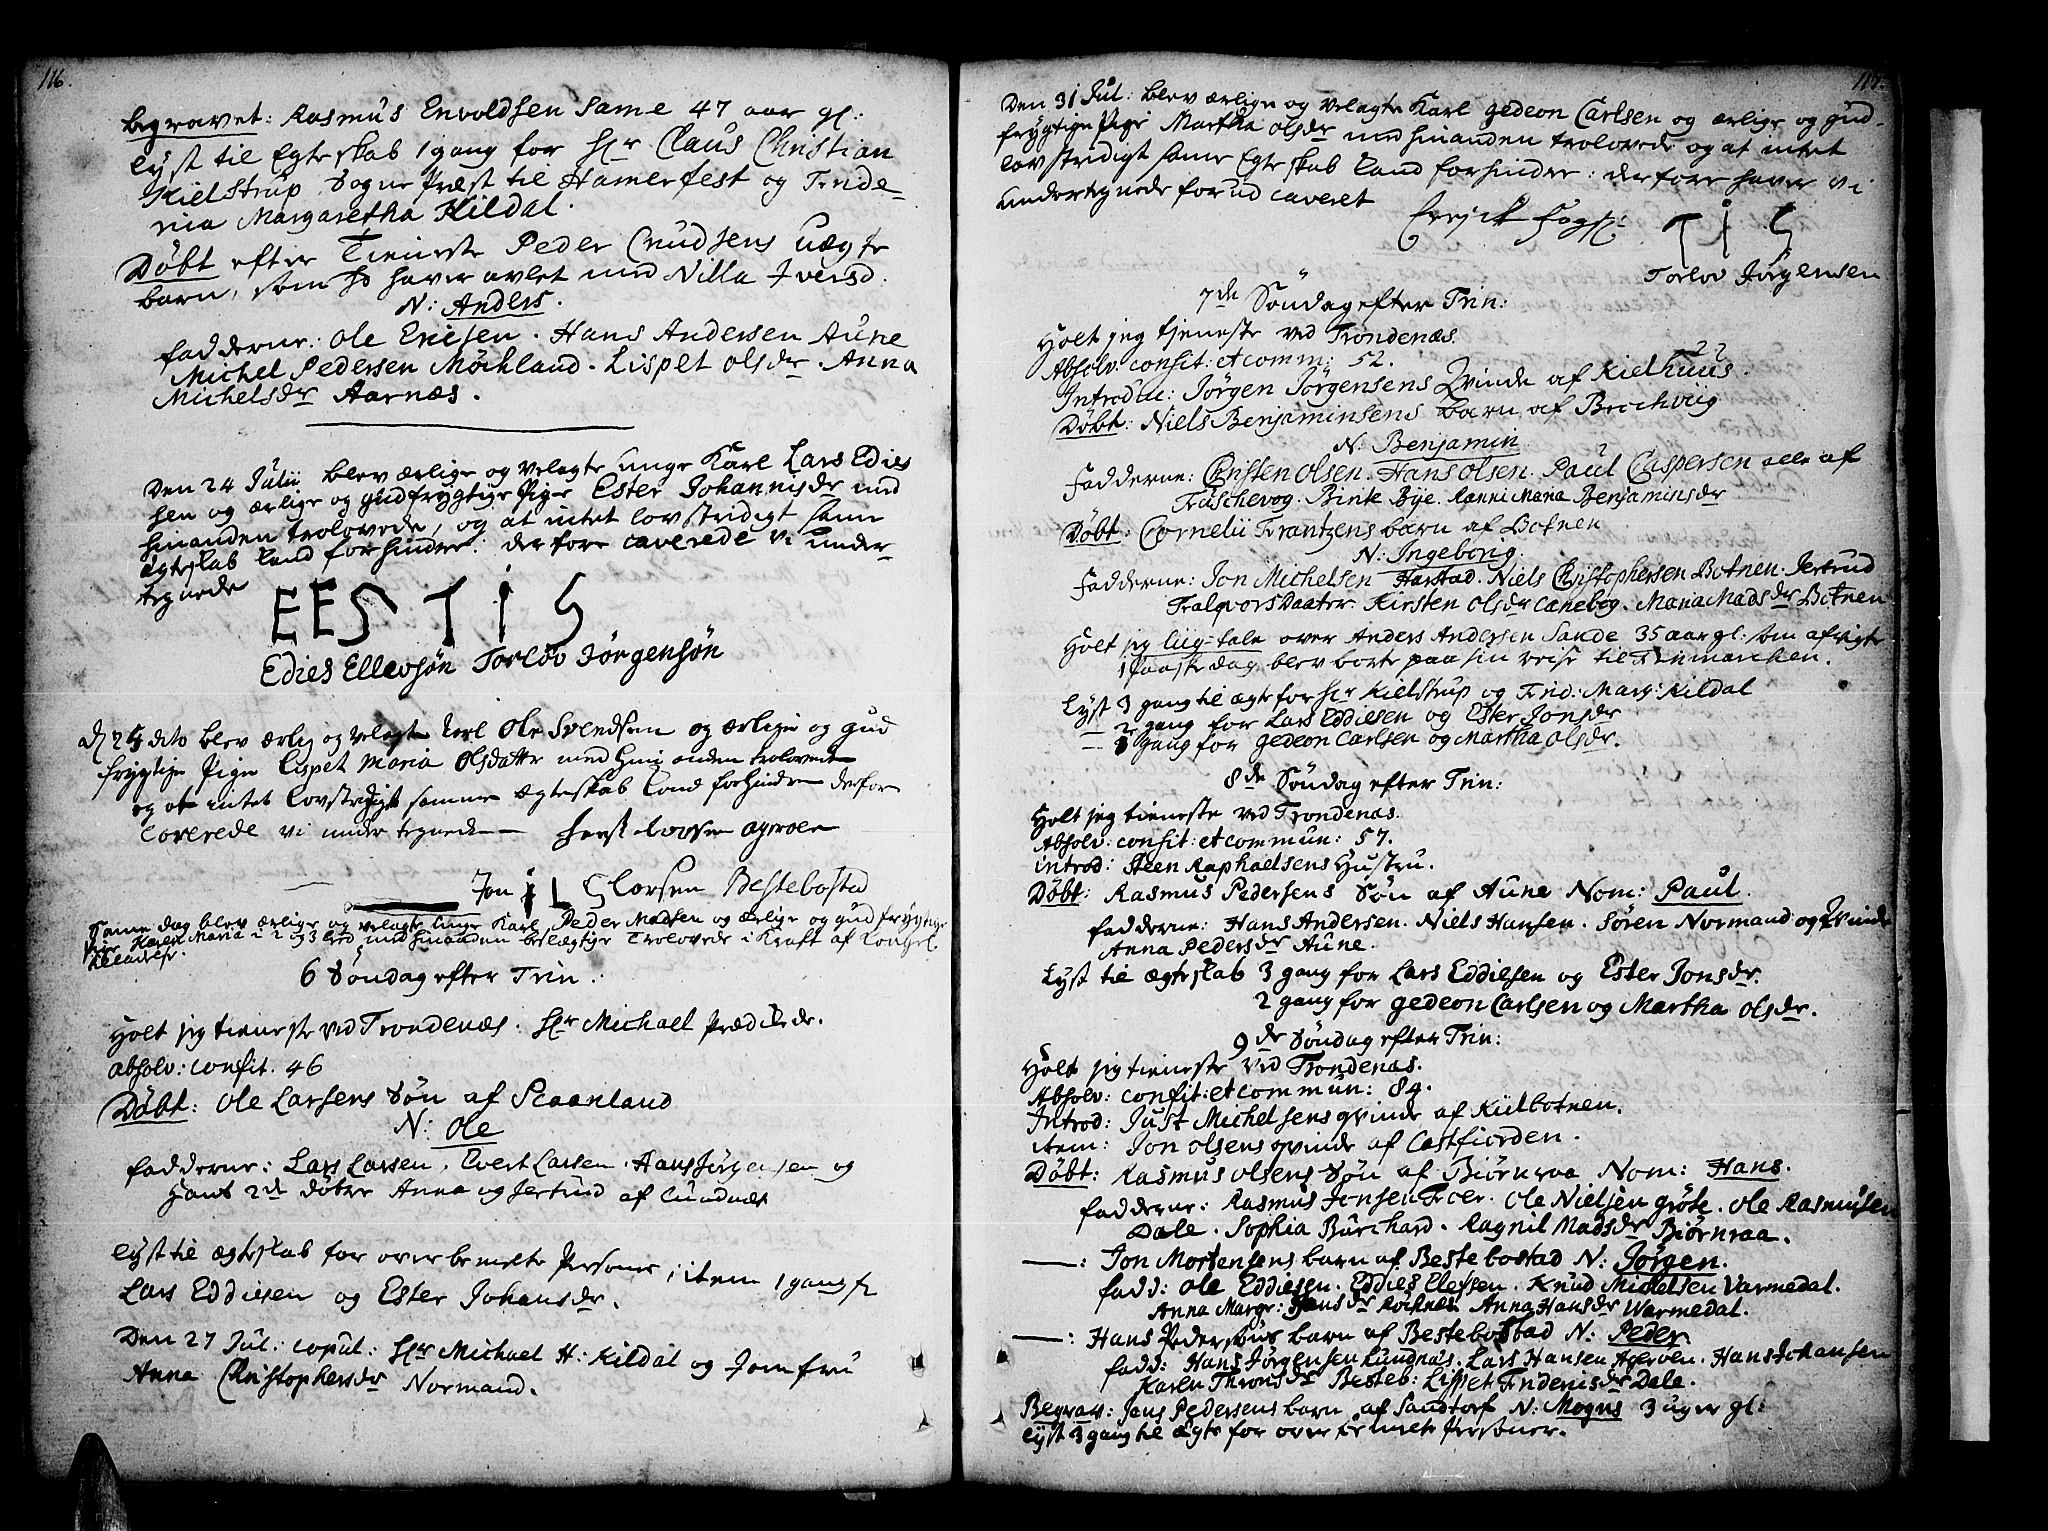 116.
begravet: Rasmus Envoldsen Same 47 aar gl:
lyst til Egteskab 1 gang for Hr Claus Christian
Kielstrup Sogne Præst til Hamerfest og Fride-
rica Margaretha Kildal.
Döbt efter Tieneste Peder Cnudsens uægte
barn, som hd haver avlet med Nilla Iversd.
N: Anders.
fadderne: Ole Ericsen. Hans Andersen Aune
Michel Pedersen Möchland. Lispet olsdr. Anna
Michelsdr Aarnæs.
Den 24 Julii blev ærlige og velagte unge Karl Lars Edies
sen og ærlige og gudfrygtige Pige Ester Johannisdr med
hinanden trolovede, og at intet lovstridigt same
ægteskab kand forhindre: derfore caverede vi under-
tegnede
EES TIS
Edies Ellevsön Torlöv Jörgensön
d 24 dito blev ærlig og velagte karl Ole Svendsen og ærlige og gud
frygtige Pige Lispet Maria Olsdatter med hin anden trolovede
og at intet lovstridigt samme ægteskab kand forhindre derfor
Caverede vi under tegnede Agerøen
Jon ILS Larsen Bestebostad
Same dag blev ærlige og velagte unge Karl Peder Madsen og ærlige og gudfrygtige
Pige Karen Maria i 2 og 3 Led med hinanden beslægtige Trolovede i Kraft af Kongel.
6 Söndag efter Trin:
Holt jeg tieneste ved Trondenæs. Hr Michael Prædikede.
absolv: confit. 46
Döbt: Ole Larsens Sön af Skaanland
N: Ole
fadderne: Lars Larsen. Evert Larsen. Hans Jörgensen og
Hans 2de döttre Anna og Jertrud af Lundnæs
lyst til ægteskab for over bemelte Personer, item 1 gang for
Lars Eddiesen og Ester Johansdr.
Den 27 Jul: copul: Hr Michael H: Kildal og Jomfru
Anna Christophersdr Normand.
115.
Den 31 Jul: blev ærlige og velagte Karl Gedeon Carlsen og ærlige og gud-
frygtige Pige Martha Olsdr med hinanden trolovede og at intet
lovstridigt same Egteskab kand forhindre: derfore haver vi
undertegnede forud caveret
TIS
Torlov Jörgensen
7de Söndag efter Trin:
Holt jeg tjeneste ved Trondenæs.
Absolv: confit: et comm: 52.
Introduc: Jörgen Jörgensens Qvinde af Kielhuus.
Döbt: Niels Benjaminsens barn af Brochviig
N: Benjamin
Fadderne: Christen Olsen. Hans Olsen. Paul Caspersen alle af
Traschevog. Birite Bye. Ranni Maria Benjaminsdr
Döbt: Cornelii Frantzens barn af Botnen
N: Ingeborig.
Fadderne: Jon Michelsen Harstad. Niels Christophersen Botnen. Jertrud
Tralqvors Daatter. Kirsten Olsdr Canebog. Maria Madsdr Botnen
Holt jeg liig-tale over Anders Andersen Sande 35 aar gl: som afvigte
1 Paaske dag blev borte paa sin reise til Finmarchen.
Lyst 3 gang til ægte for Hr Kielstrup og Frid: Marg: Kildal
— 2 gang for Lars Eddiesen og Ester Jonsdr
— 1 gang for Gedeon Carlsen og Martha Olsdr.
8de Söndag efter Trin:
Holt jeg tieneste ved Trondenæs.
Absolv: confit: et commun: 57.
introd: Steen Raphaelsens Hustru.
Döbt: Rasmus Pedersens Sön af Aune Nom: Paul.
fadderne: Hans Andersen. Niels Hansen. Sören Normand og Qvinde
Anna Pedersdr Aune.
Lyst til ægteskab 3 gang for Lars Eddiesen og Ester Jonsdr.
2 gang for Gedeon Carlsen og Martha Olsdr.
9de Söndag efter Trin:
Holt jeg tieneste ved Trondenæs.
Absolv: confit: et commun: 84.
Introd: Just Michelsens qvinde af Kiilbotnen.
item: Jon Olsens qvinde af Castfiorden.
Döbt: Rasmus Olsens Sön af Biørnraa Nom: Hans.
fadderne: Rasmus Jensen Troer. Ole Nielsen Gröte. Ole Rasmusen
Dale. Sophia Burchard. Ragnil Madsdr Biørnraa.
—: Jon Mortensens barn af Bestebostad N: Jörgen.
fadd: Ole Eddiesen. Eddies Elefsen. Knud Michelsen Varmedal.
Anna Margr: Hansdr Rochnæs Anna Hansdr Warmedal.
—: Hans Pedersens barn af Bestebostad N: Peder
fadd: Hans Jörgensen Lundnæs. Lars Hansen Agerøen. Hans Johansen
Karen Thronsdr Besteb: Lisset Fridericsdr Dale.
Begrav: Jens Pedersens barn af Sandtorf N: Mogns 3 uger gl:
lyst 3 gang til Ægte for over bemelte Personer.